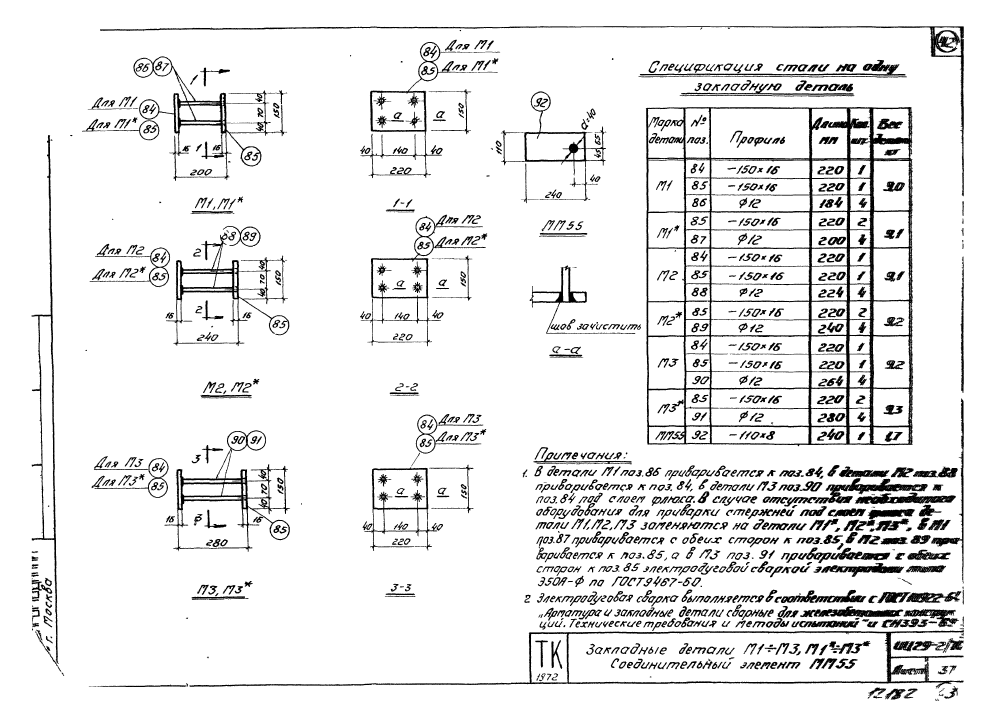 86 87
1
Для М1 84
Для М1* 85
40 70 40
150
16 1 16
85
200
М1, М1*
84 Для М1
85 Для М1*
а а
150
40 140 40
220
1-1
92
d=40
110
65
45
40
240
ММ55
Для М2 84
Для М2* 85
2
88 89
40 70 40
150
2
16 16
85
240
М2, М2*
84 Для М2
85 Для М2*
а а
150
40 140 40
220
2-2
шов зачистить
а-а
Для М3 84
Для М3* 85
3
90 91
40 70 40
150
16 16
85
280
М3, М3*
84 Для М3
85 Для М3*
а а
150
40 140 40
220
3-3
Спецификация стали на одну
закладную деталь
Марка детали № поз. Профиль Длина мм Кол. шт. Вес детали кг
М1 84 -150×16 220 1 9,0
85 -150×16 220 1
86 Ф12 184 4
М1* 85 -150×16 220 2 9,1
87 Ф12 200 4
М2 84 -150×16 220 1 9,1
85 -150×16 220 1
88 Ф12 224 4
М2* 85 -150×16 220 2 9,2
89 Ф12 240 4
М3 84 -150×16 220 1 9,2
85 -150×16 220 1
90 Ф12 264 4
М3* 85 -150×16 220 2 9,3
91 Ф12 280 4
ММ55 92 -110×8 240 1 1,7
Примечания:
1. В детали М1 поз.86 приваривается к поз.84, в детали М2 поз.88
приваривается к поз.84, в детали М3 поз.90 приваривается к
поз.84 под слоем флюса. В случае отсутствия необходимого
оборудования для приварки стержней под слоем флюса де-
тали М1, М2, М3 заменяются на детали М1*, М2*, М3*, в М1
поз.87 приваривается с обеих сторон к поз.85, в М2 поз. 89 при-
варивается к поз.85, а в М3 поз. 91 приваривается с обеих
сторон к поз.85 электродуговой сваркой электродами типа
Э50А-Ф по ГОСТ9467-60.
2. Электродуговая сварка выполняется в соответствии с ГОСТ 10922-64
„Арматура и закладные детали сварные для железобетонных конструк-
ций. Технические требования и методы испытаний" и СН393-69
ТК
1972
Закладные детали М1÷М3, М1*÷М3*
Соединительный элемент ММ55
ИИ29-2/70
Лист 37
г. Москва
12182